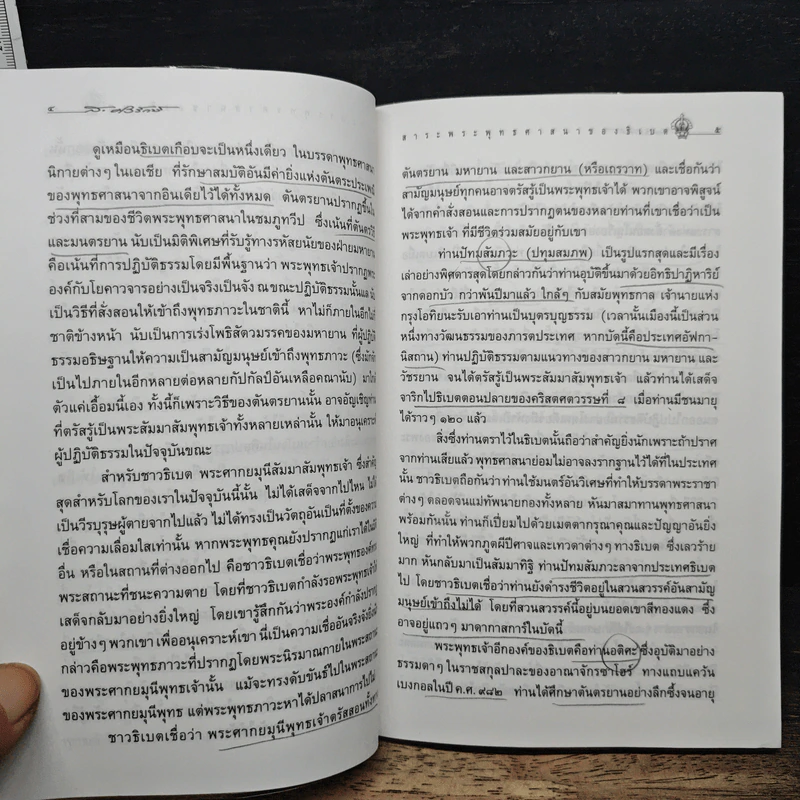 ๔
ส. ศิวรักษ์
ดูเหมือนธิเบตเกือบจะเป็นหนึ่งเดียว ในบรรดาพุทธศาสนา
นิกายต่างๆ ในเอเชีย ที่รักษาสมบัติอันมีค่ายิ่งแห่งตันตระประเพณี
ของพุทธศาสนาจากอินเดียไว้ได้ทั้งหมด ตันตรยานปรากฏขึ้นใน
ช่วงที่สามของชีวิตพระพุทธศาสนาในชมภูทวีป ซึ่งเน้นที่ตันตรวิธี
และมนตรยาน นับเป็นมิติพิเศษที่รับรู้ทางรหัสนัยของฝ่ายมหายาน
คือเน้นที่การปฏิบัติธรรมโดยมีพื้นฐานว่า พระพุทธเจ้าปรากฏพระ
องค์กับโยคาวจารอย่างเป็นจริงเป็นจัง ณ ขณะปฏิบัติธรรมนั้นแล นับ
เป็นวิธีที่สั่งสอนให้เข้าถึงพุทธภาวะในชาตินี้ หาไม่ก็ภายในอีกไม่กี่
ชาติข้างหน้า นับเป็นการเร่งโพธิสัตวมรรคของมหายาน ที่ผู้ปฏิบัติ
ธรรมอธิษฐานให้ความเป็นสามัญมนุษย์เข้าถึงพุทธภาวะ (ซึ่งมักจะ
เป็นไปภายในอีกหลายต่อหลายกัปกัลป์อันเหลือคณานับ) มา
ตัวแค่เอื้อมนี้เอง ทั้งนี้ก็เพราะวิธีของตันตรยานนั้น อาจอัญเชิญท่าน
ที่ตรัสรู้เป็นพระสัมมาสัมพุทธเจ้าทั้งหลายเหล่านั้น ให้มาอนุเคราะห์
ผู้ปฏิบัติธรรมในปัจจุบันขณะ
สำหรับชาวธิเบต พระศากยมุนีสัมมาสัมพุทธเจ้า ซึ่งสำคัญ
สุดสำหรับโลกของเราในปัจจุบันนี้นั้น ไม่ได้เสด็จจากไปไหน ไม่ได้
เป็นวีรบุรุษผู้ตายจากไปแล้ว ไม่ได้ทรงเป็นวัตถุอันเป็นที่ตั้งของความ
เชื่อความเลื่อมใสเท่านั้น หากพระพุทธคุณยังปรากฏแก่เราได้ใน
อื่น หรือในสถานที่ต่างออกไป คือชาวธิเบตเชื่อว่าพระพุทธองค์
พระสถานะที่ชนะความตาย โดยที่ชาวธิเบตกำลังรอพระพุทธเจ้า
เสด็จกลับมาอย่างยิ่งใหญ่ โดยเขารู้สึกกันว่าพระองค์กำลังปรากฏ
อยู่ข้างๆ พวกเขา เพื่ออนุเคราะห์เขา นี้เป็นความเชื่ออันจริงจังยิ่งนัก
กล่าวคือพระพุทธภาวะที่ปรากฏโดยพระนิรมาณกายในพระสถานะ
ของพระศากยมุนีพุทธเจ้านั้น แม้จะทรงดับขันธ์ไปในพระสถานะ
ของพระศากยมุนีพุทธ แต่พระพุทธภาวะหาได้ปลาสนาการไปไม่
ชาวธิเบตเชื่อว่า พระศากยมุนีพุทธเจ้าตรัสสอนทั้งทาง
สาระพระพุทธศาสนาของธิเบต
๕
ตันตรยาน มหายาน และสาวกยาน (หรือเถรวาท) และเชื่อกันว่า
สามัญมนุษย์ทุกคนอาจตรัสรู้เป็นพระพุทธเจ้าได้ พวกเขาอาจพิสูจน์
ได้จากคำสั่งสอนและการปรากฏตนของหลายท่านที่เขาเชื่อว่าเป็น
พระพุทธเจ้า ที่มีชีวิตร่วมสมัยอยู่กับเขา
ท่านปัทมสัมภวะ (ปทุมสมภพ) เป็นรูปแรกสุดและมีเรื่อง
เล่าอย่างพิศดารสุดโดยกล่าวกันว่าท่านอุบัติขึ้นมาด้วยอิทธิปาฏิหาริย์
จากดอกบัว กว่าพันปีมาแล้ว ใกล้ๆ กับสมัยพุทธกาล เจ้านายแห่ง
กรุงโอทิยนะรับเอาท่านเป็นบุตรบุญธรรม (เวลานั้นเมืองนี้เป็นส่วน
หนึ่งทางวัฒนธรรมของภารตประเทศ หากบัดนี้คือประเทศอัฟกา-
นิสถาน) ท่านปฏิบัติธรรมตามแนวทางของสาวกยาน มหายาน และ
วัชรยาน จนได้ตรัสรู้เป็นพระสัมมาสัมพุทธเจ้า แล้วท่านได้เสด็จ
จาริกไปธิเบตตอนปลายของคริสตศตวรรษที่ ๘ เมื่อท่านมีชนมายุ
ได้ราวๆ ๑๒๐ แล้ว
สิ่งซึ่งท่านตราไว้ในธิเบตนั้นถือว่าสำคัญยิ่งนักเพราะถ้าปราศ
จากท่านเสียแล้ว พุทธศาสนาย่อมไม่อาจลงรากฐานไว้ได้ที่ในประเทศ
นั้น ชาวธิเบตถือกันว่า ท่านใช้มนตร์อันวิเศษที่ทำให้บรรดาพระราชา
ต่างๆ ตลอดจนแม่ทัพนายกองทั้งหลาย หันมาสมาทานพุทธศาสนา
พร้อมกันนั้น ท่านก็เปี่ยมไปด้วยเมตตากรุณาคุณและปัญญาอันยิ่ง
ใหญ่ ที่ทำให้พวกภูตผีปีศาจและเทวดาต่างๆ ทางธิเบต ซึ่งเลวร้าย
มาก หันกลับมาเป็นสัมมาทิฐิ ท่านปัทมสัมภวะลาจากประเทศธิเบต
ไป โดยชาวธิเบตเชื่อว่าท่านยังดำรงชีวิตอยู่ในสวนสวรรค์อันสามัญ
มนุษย์เข้าถึงไม่ได้ โดยที่สวนสวรรค์นี้อยู่บนยอดเขาสีทองแดง ซึ่ง
อาจอยู่แถวๆ มาดากาสการ์ในบัดนี้
พระพุทธเจ้าอีกองค์ของธิเบตคือท่านอติศะ ซึ่งอุบัติมาอย่าง
ธรรมดาๆ ในราชสกุลปาละของอาณาจักรซาโฮร์ ทางแถบแคว้น
เบงกอลในปี ค.ศ. ๙๘๒ ท่านได้ศึกษาตันตรยานอย่างลึกซึ้งจนอายุ